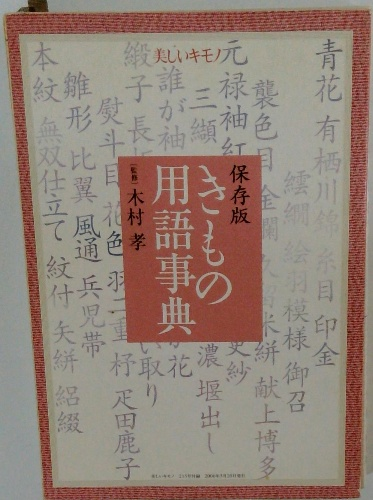 美しいキモノ
保存版
きもの
用語事典
[監修] 木村 孝
青花 有栖川錦 糸目 印金
繧繝 絵羽模様 御召
襲色目 金襴 久留米絣 献上博多
元禄袖 紅
三纈
濃 堰出し
誰が袖
緞子 長
熨斗目 花色 羽二重 杼 疋田鹿子
雛形 比翼 風通 兵児帯
本紋 無双仕立て 紋付 矢絣 絽綴